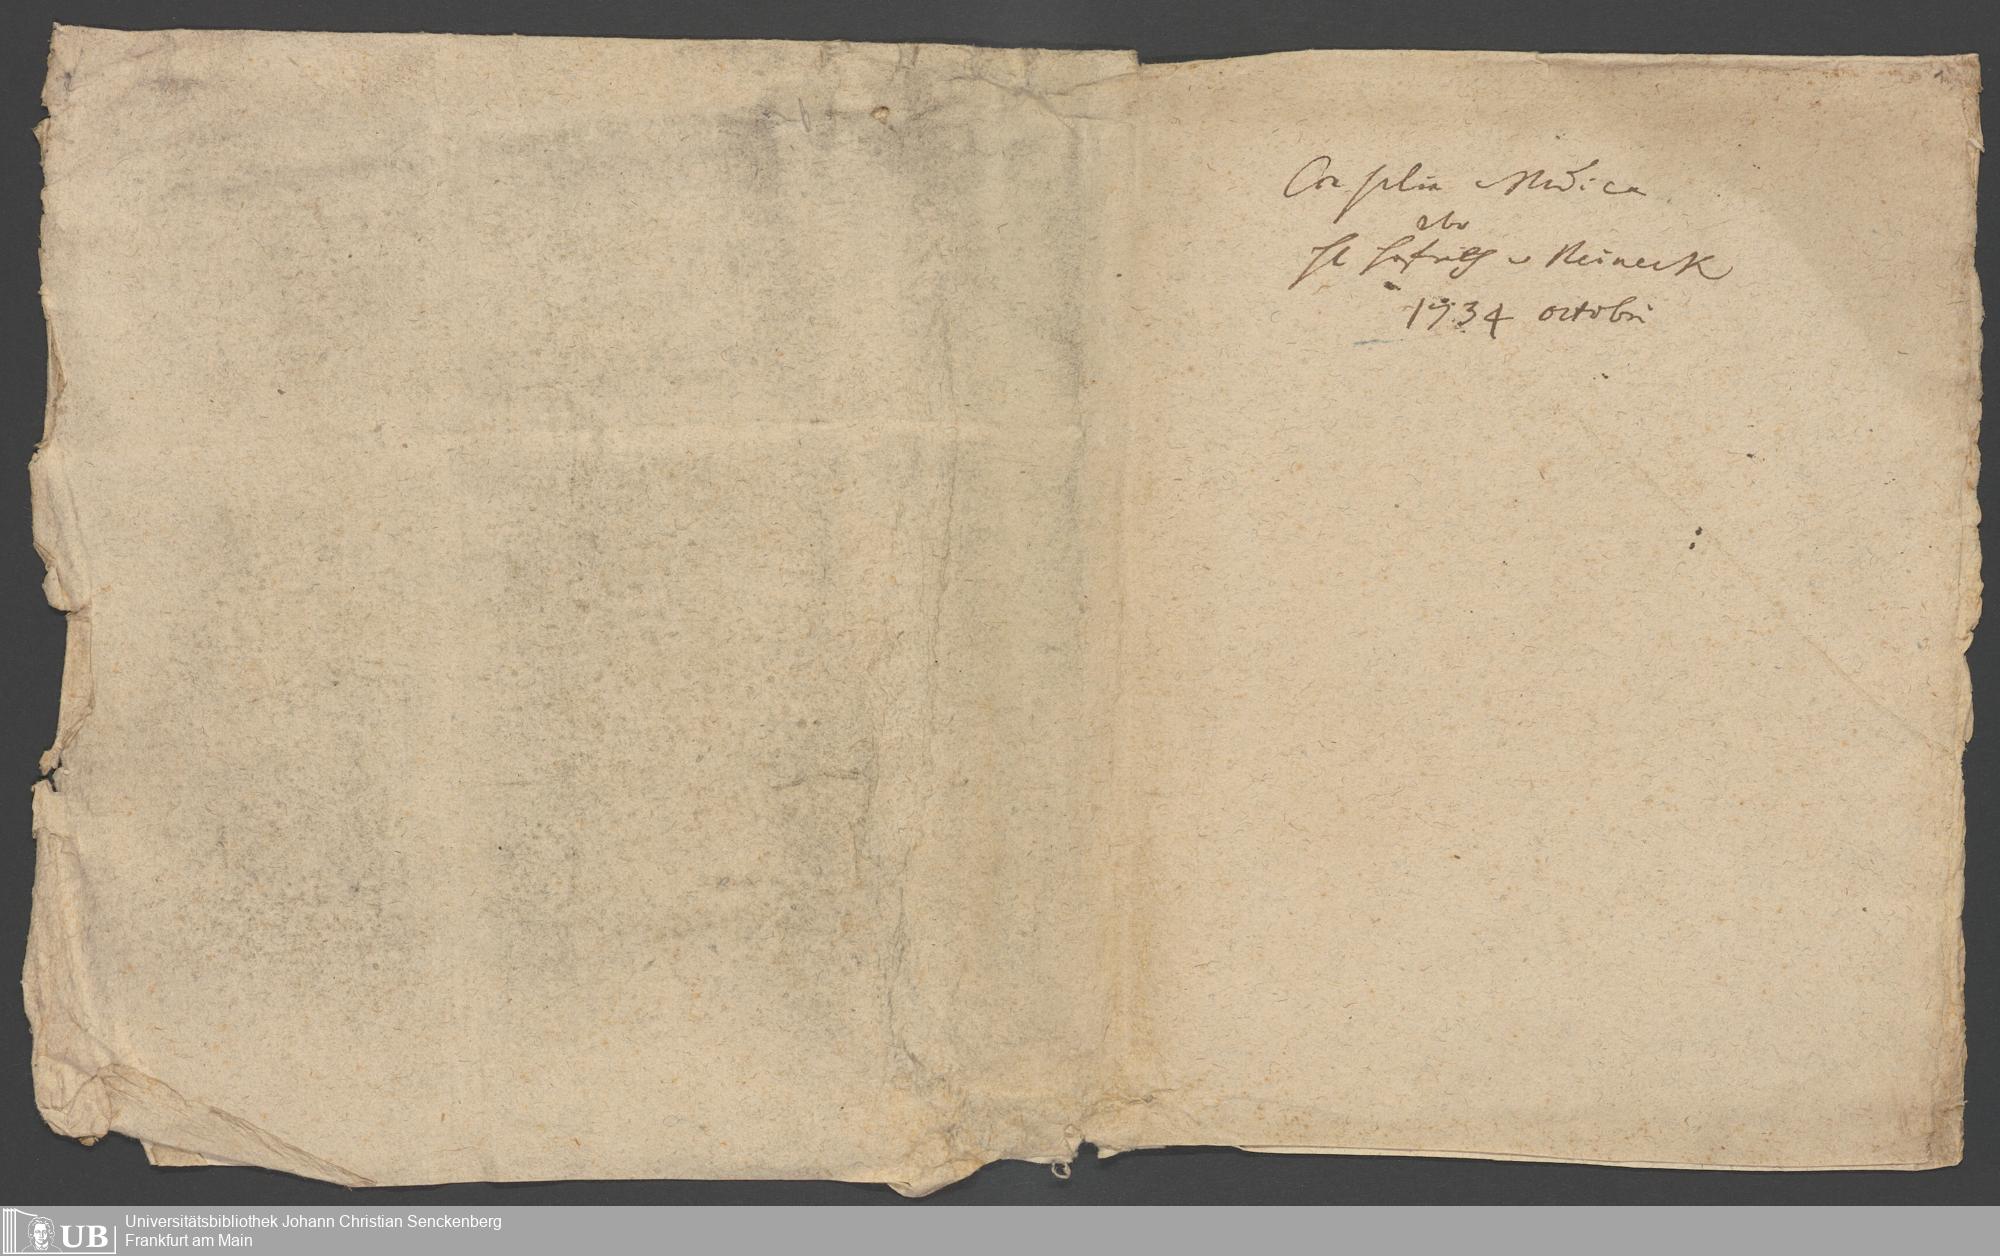 Consilia Medica
v Reineck
1734 octobri
UB Universitätsbibliothek Johann Christian Senckenberg
Frankfurt am Main